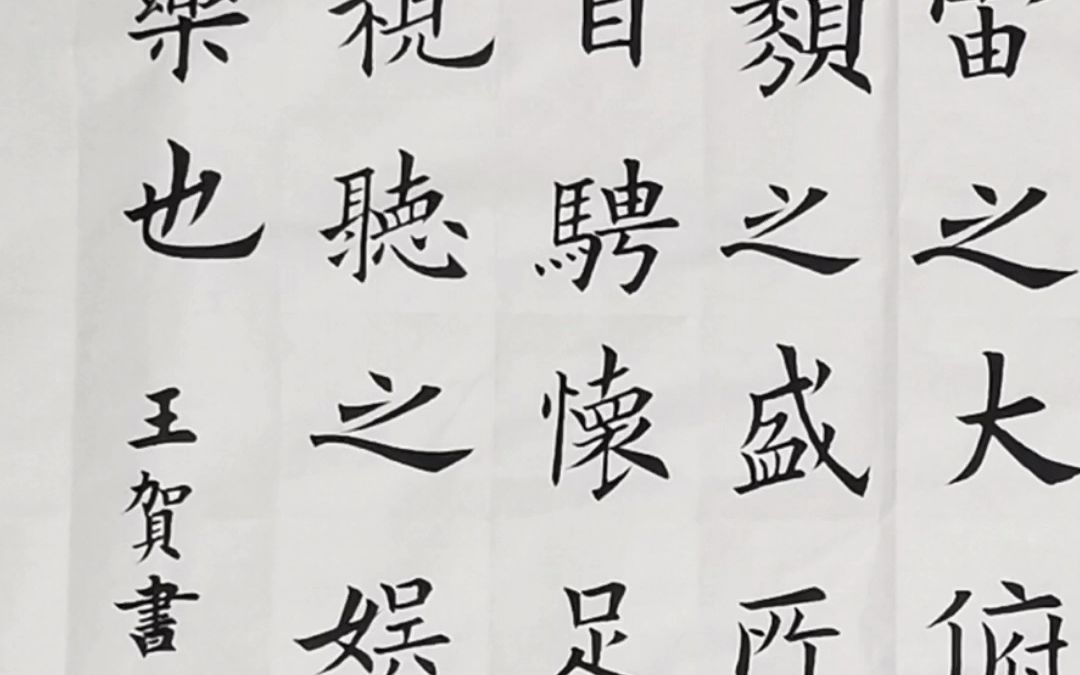 宙之大俯
類之盛所
目騁懷足
視聽之娛
樂也
王賀書